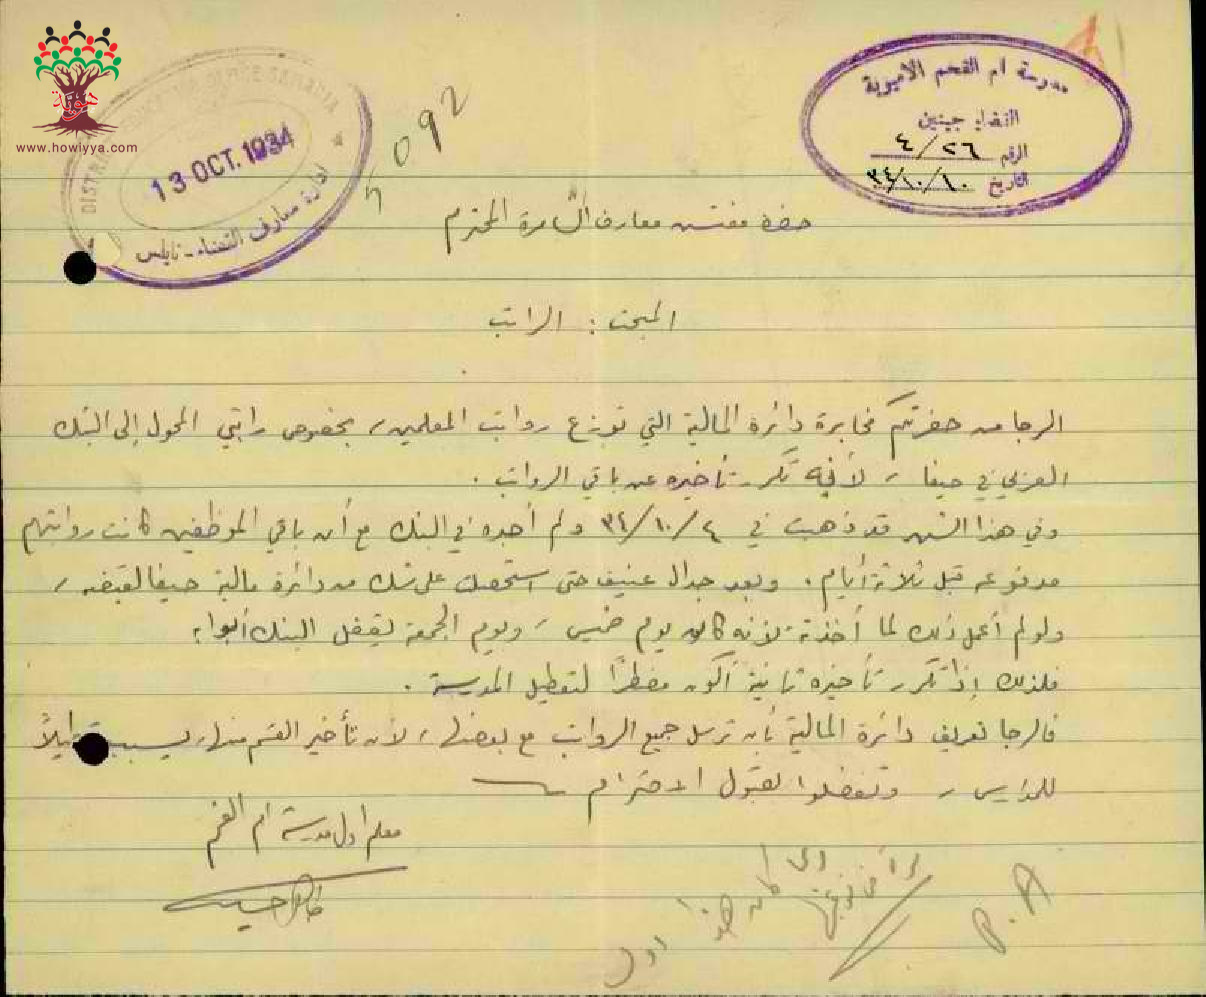 هوية
www.howiyya.com
13 OCT. 1934
ادارة معارف القضاء - نابلس
5092
مدرسة ام الفحم الاميرية
القضاء جينين
الرقم ٤/٢٦
التاريخ ٣٤/١٠/١٠
حضرة مفتش معارف السامرة المحترم
المبحث : الراتب
الرجا من حضرتكم مخابرة دائرة المالية التي توزع رواتب المعلمين، بخصوص راتبي المحول إلى البنك
العربي في حيفا، لأنه تكرر تأخيره عن باقي الرواتب .
وفي هذا الشهر قد ذهبت في ٣٤/١٠/٤ ولم أجده في البنك مع أن باقي الموظفين كانت رواتبهم
مدفوعه قبل ثلاثة أيام . وبعد جدال عنيف حتى استحصلت على شك من دائرة مالية حيفا لقبضه،
ولو لم أعمل ذلك لما أخذته لأنه كان يوم خميس، ويوم الجمعة يقفل البنك أبوابه
فلذلك إذا تكرر تأخيره ثانية أكون مضطرًا لتعطيل المدرسة .
فالرجا تعريف دائرة المالية بأن ترسل جميع الرواتب مع بعضها، لأن تأخير القسم منها، يسبب
للمدارس، وتفضلوا بقبول الاحترام
معلم اول مدرسة ام الفحم
P.A